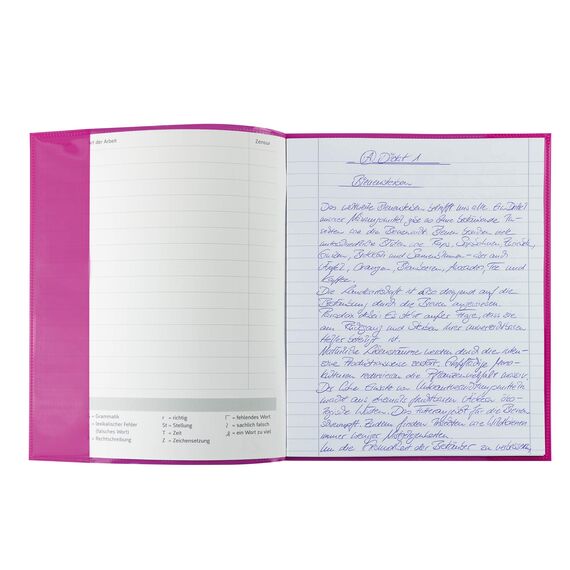 art der Arbeit
Zensur
= Grammatik
= lexikalischer Fehler
(falsches Wort)
= Rechtschreibung
r = richtig
St = Stellung
T = Zeit
Z = Zeichensetzung
= fehlendes Wort
? = sachlich falsch
= ein Wort zu viel
Diktat 1
Bienensterben
Das weltweite Bienensterben betrifft uns alle. Ein Drittel
unserer Nahrungsmittel gäbe es ohne bestäubende In-
sekten wie die Biene nicht. Bienen
unterschiedliche Blüten wie Raps,
Gurken, Brokkoli und Sonnenblumen - aber auch
Äpfel, Orangen, Blaubeeren, Avocados, Tee und
Kaffee.
Die Landwirtschaft ist also dringend auf die
Bestäubung durch die Bienen angewiesen.
Paradox dabei: Es steht außer Frage, dass sie
am Rückgang und Sterben ihrer unverzichtbaren
Helfer beteiligt ist.
Natürliche Lebensräume werden durch die inten-
sive Produktionsweise zerstört. Großflächige Mono-
kulturen reduzieren die Pflanzenvielfalt massiv.
Der hohe Einsatz von Unkrautvernichtungsmitteln
macht aus ehemals fruchtbaren Äckern öko-
logische Wüsten. Das Futterangebot für die Bienen
schrumpft. Zudem finden Insekten wie Wildbienen
immer weniger Nistmöglichkeiten.
Um die Gesundheit der Bestäuber zu verbessern,